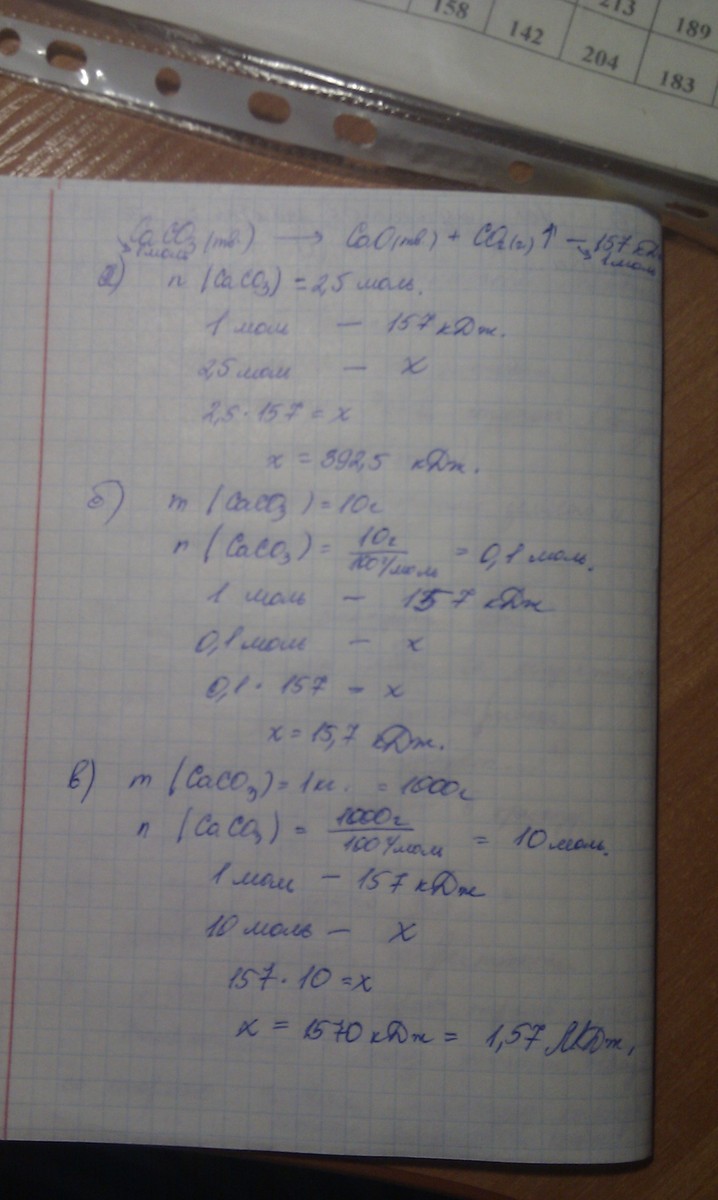 158 142 213 204 189 183
CaCO₃(тв.) → CaO(тв) + CO₂(г)↑ − 157 кДж
1 моль 1 моль
а) n (CaCO₃) = 2,5 моль.
1 моль — 157 кДж.
2,5 моль — x
2,5 · 157 = x
x = 392,5 кДж.
б) m (CaCO₃) = 10г
n (CaCO₃) = 10г / 100г/моль = 0,1 моль.
1 моль — 157 кДж
0,1 моль — x
0,1 · 157 = x
x = 15,7 кДж.
в) m (CaCO₃) = 1кг. = 1000г
n (CaCO₃) = 1000г / 100г/моль = 10 моль.
1 моль — 157 кДж
10 моль — x
157 · 10 = x
x = 1570 кДж = 1,57 МДж.